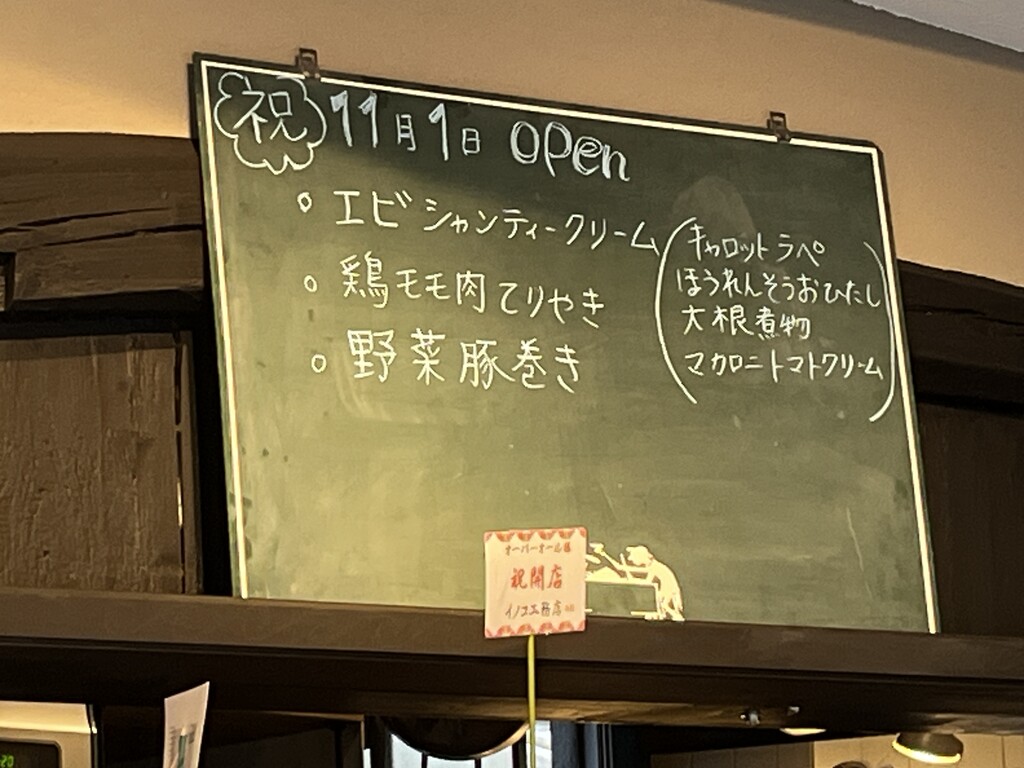 祝 11月1日 open
○ エビシャンティークリーム
○ 鶏モモ肉てりやき
○ 野菜豚巻き
(キャロットラペ
ほうれんそうおひたし
大根煮物
マカロニトマトクリーム)
オーバーオール様
祝開店
20